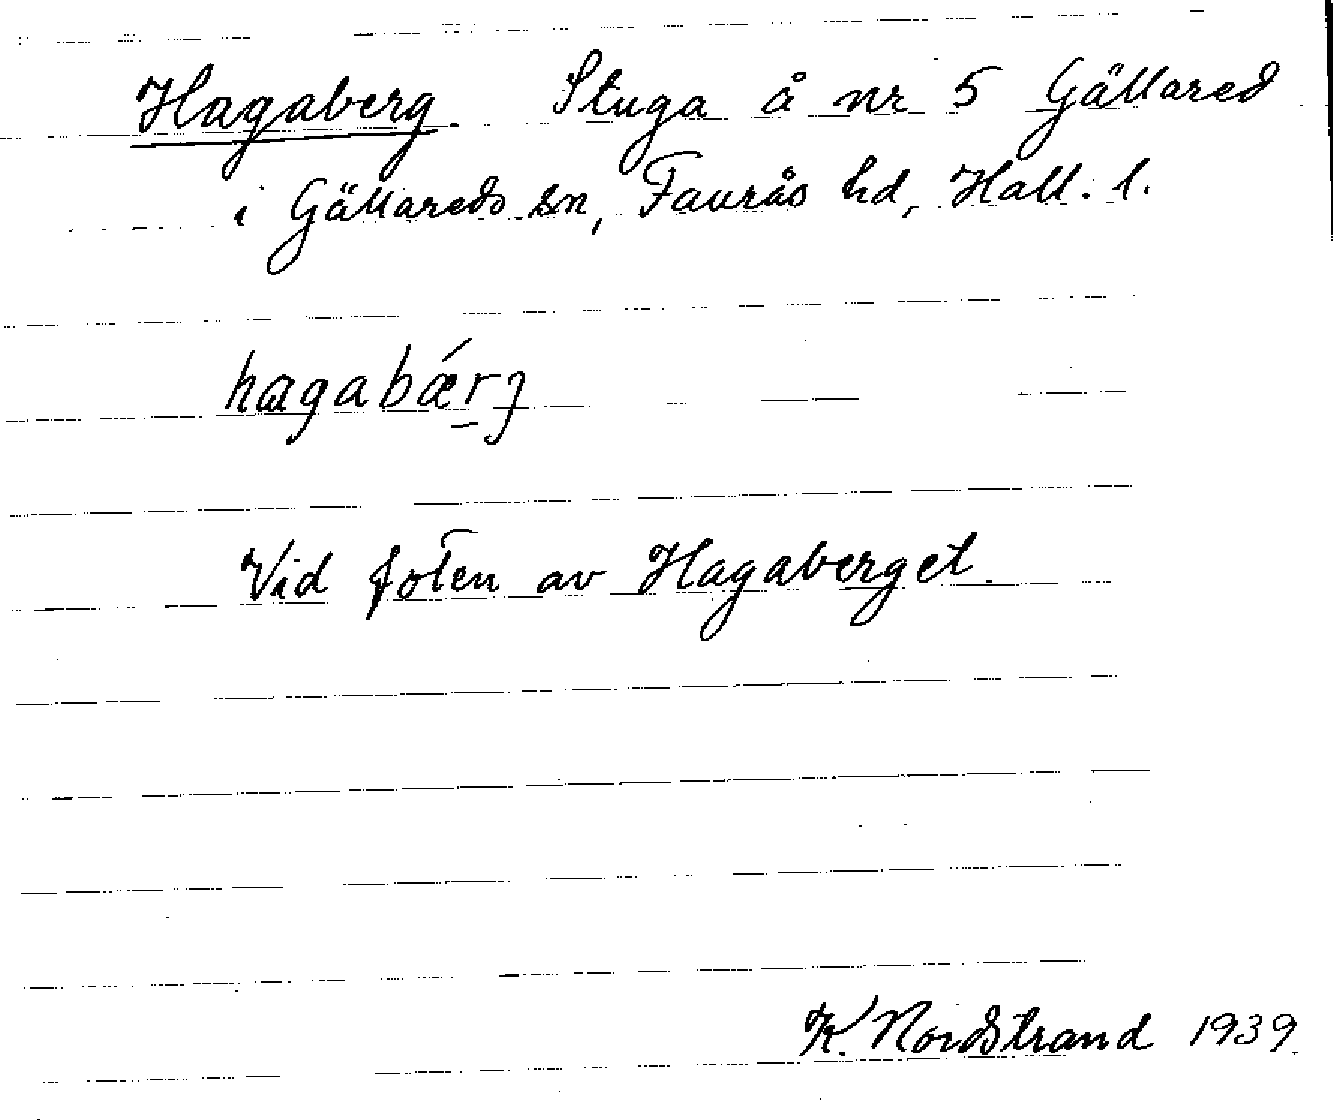 Hagaberg. Stuga å nr 5 Gällared
i Gällareds sn, Faurås hd, Hall. l.
hagabǽrj
Vid foten av Hagaberget.
K. Nordstrand 1939